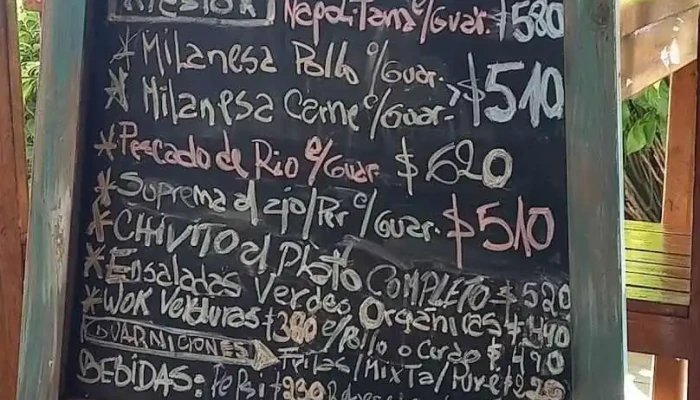 Napolitana c/Guar. $580
* Milanesa Pollo c/Guar.
* Milanesa Carne c/Guar. > $510
* Pescado de Rio c/Guar. $620
* Suprema al ajo/Per c/Guar. $510
* CHIVITO al Plato COMPLETO $520
* Ensaladas Verdes Organicas $440
* WOK Verduras $380 c/Pollo o Cerdo $490
GUARNICIONES Fritas/Mixta/Puré $220
BEBIDAS: Pepsi $230